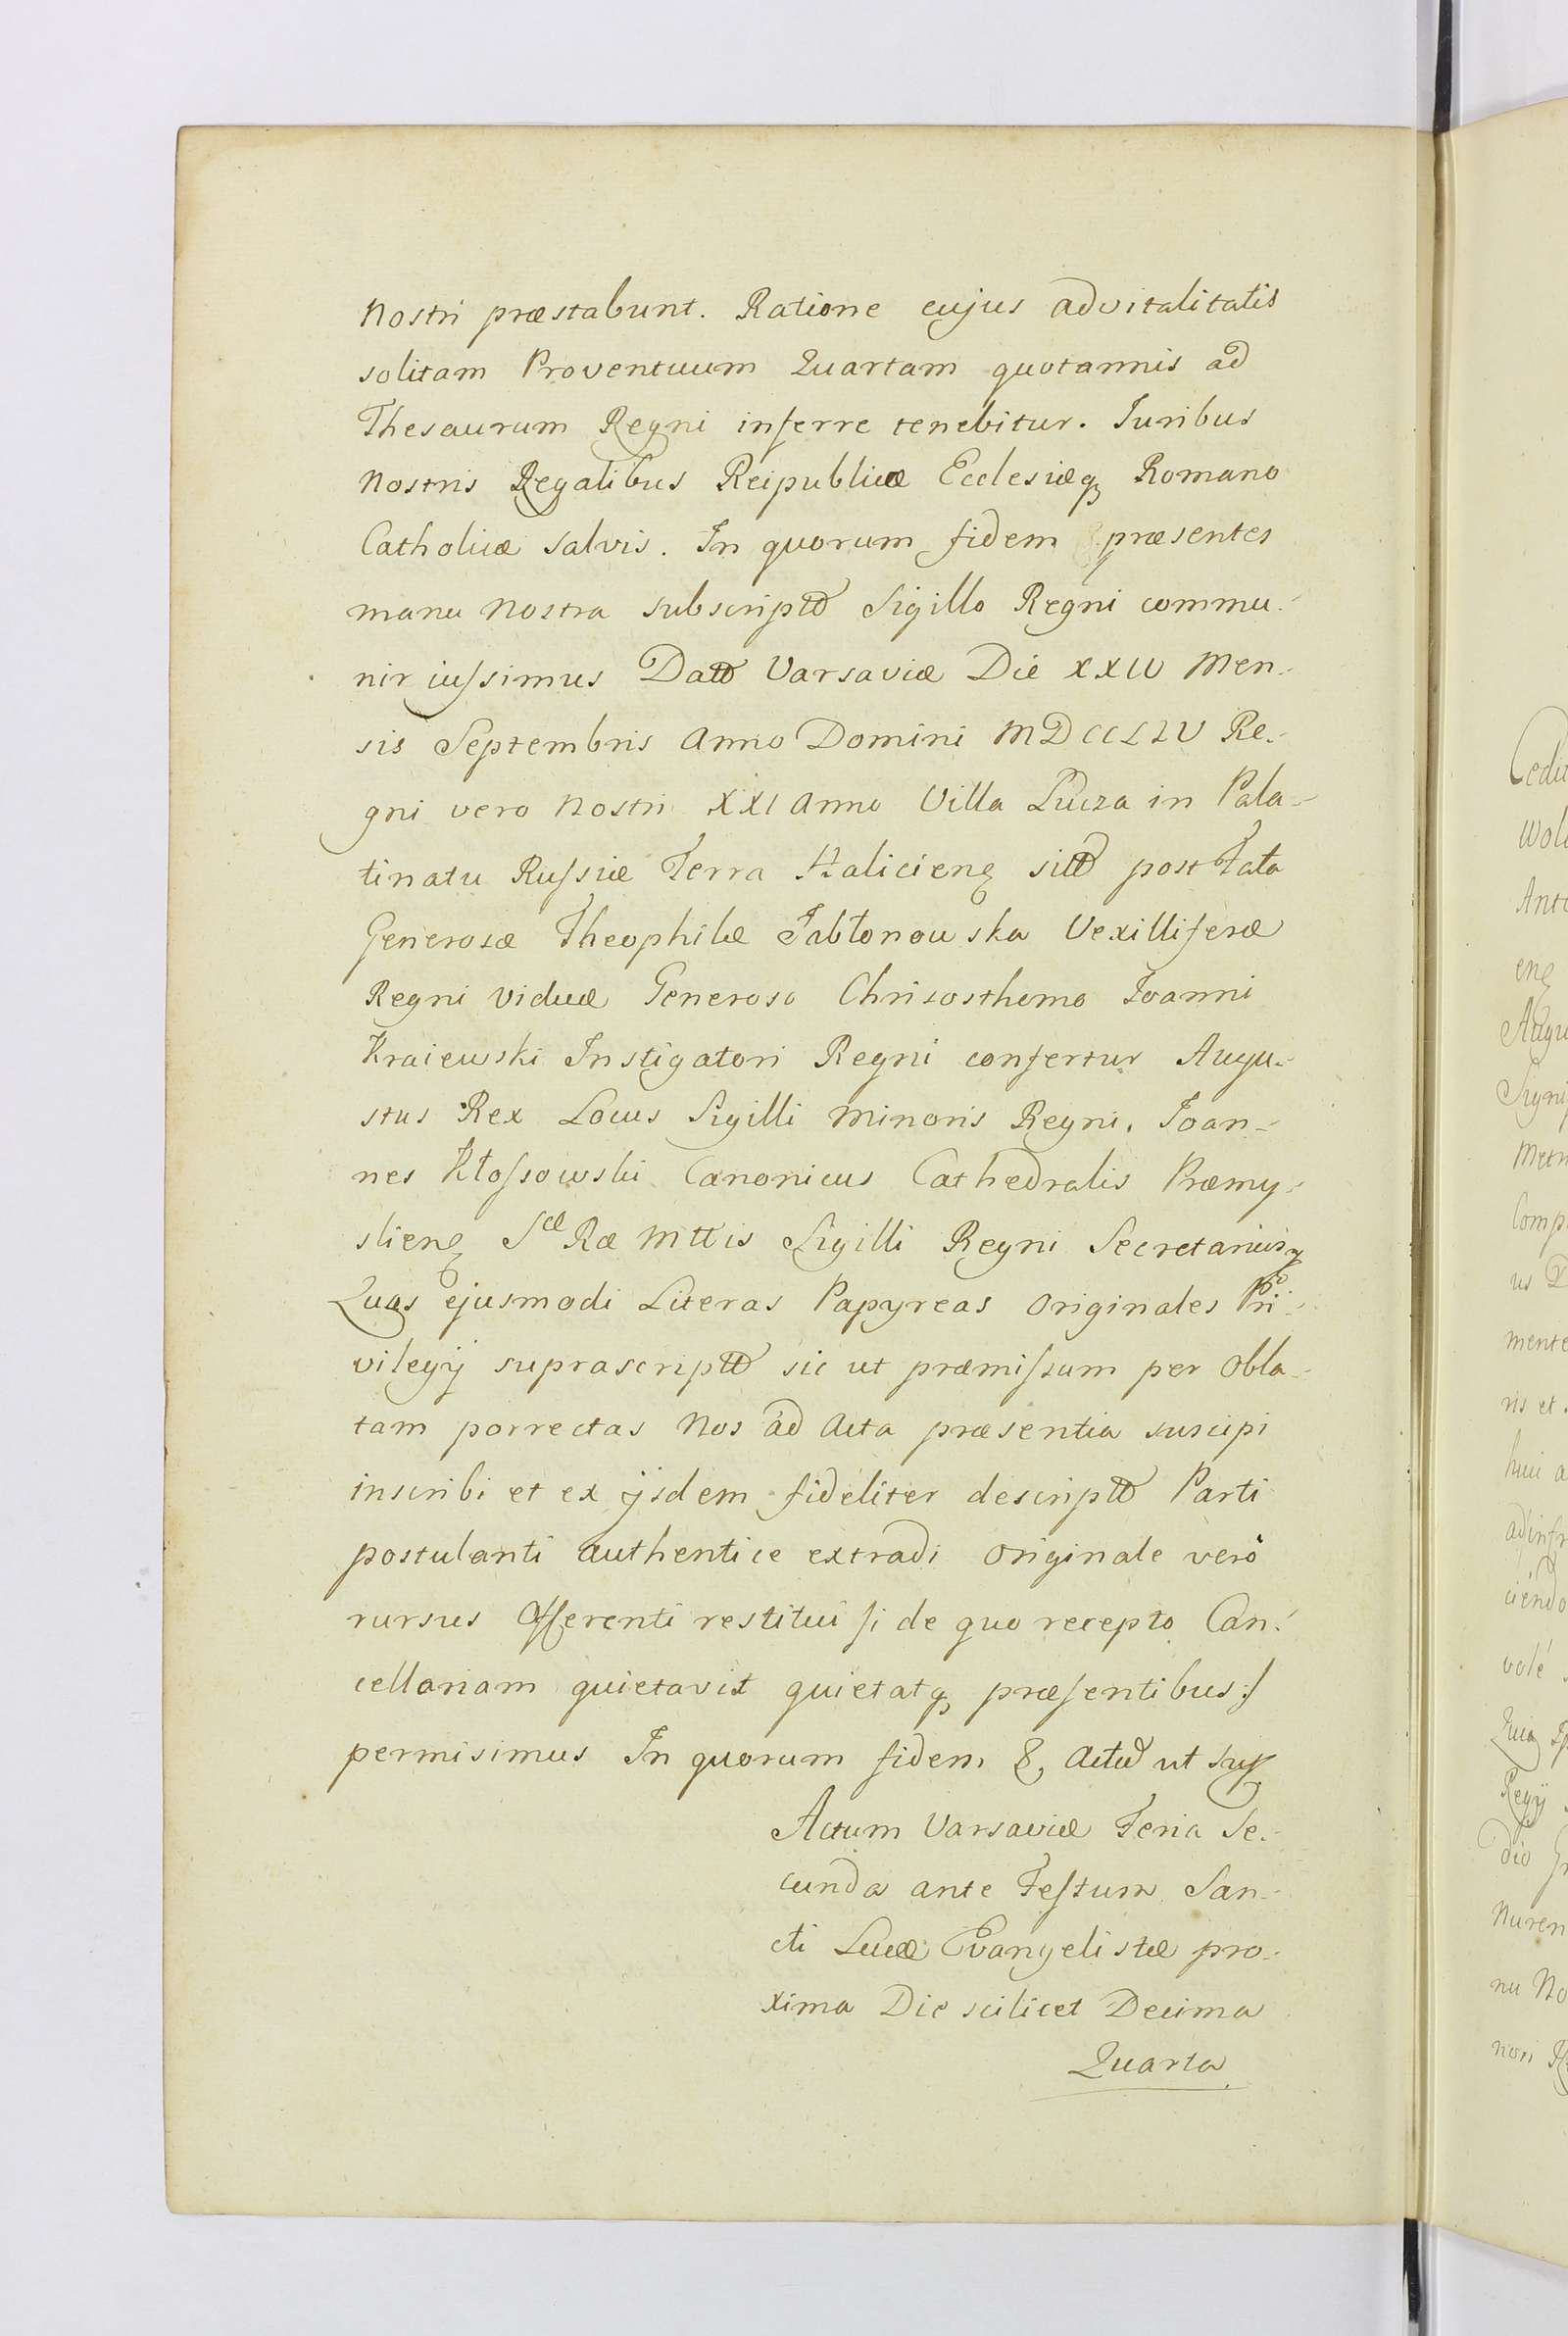 nostri præstabunt. Ratione cujus advitalitatis
solitam Proventuum Quartam quotannis ad
Thesaurum Regni inferre tenebitur. Juribus
nostris Regalibus Reipublicæ Ecclesiæq Romano
Catholicæ salvis. In quorum fidem præsentes
manu nostra subscriptt Sigillo Regni commu-
nir iussimus Datt Varsaviæ Die XXIV Men-
sis Septembris Anno Domini MDCCLIV Re-
gni vero nostri XXI anno Villa in Pala-
tinatu Russiæ Terra Halicien sitt post Fata
Generosæ Theophilæ Jabłonowska Vexilliferæ
Regni Viduæ Generoso Chrisosthomo Joanni
Kraiewski Instigatori Regni confertur Augu-
stus Rex Locus Sigilli Minoris Regni. Joan-
nes Kłossowski Canonicus Cathedralis Præmy-
slien Sæ Ræ Mttis Sigilli Regni Secretarius
Quas ejusmodi Literas Papyreas originales Pri-
vilegij suprascriptt sic ut præmissum per obla-
tam porrectas Nos ad Acta præsentia suscipi
inscribi et ex ijsdem fideliter descriptt Parti
postulanti authentice extradi originale verò
rursus Offerenti restitui /: de quo recepto Can-
cellariam quietavit quietatq præsentibus :/
permisimus In quorum fidem &, Actũ ut sup
Actum Varsaviæ Feria Se-
cunda ante Festum San-
cti Lucæ Evangelistæ pro-
xima Die scilicet Decima
Quarta